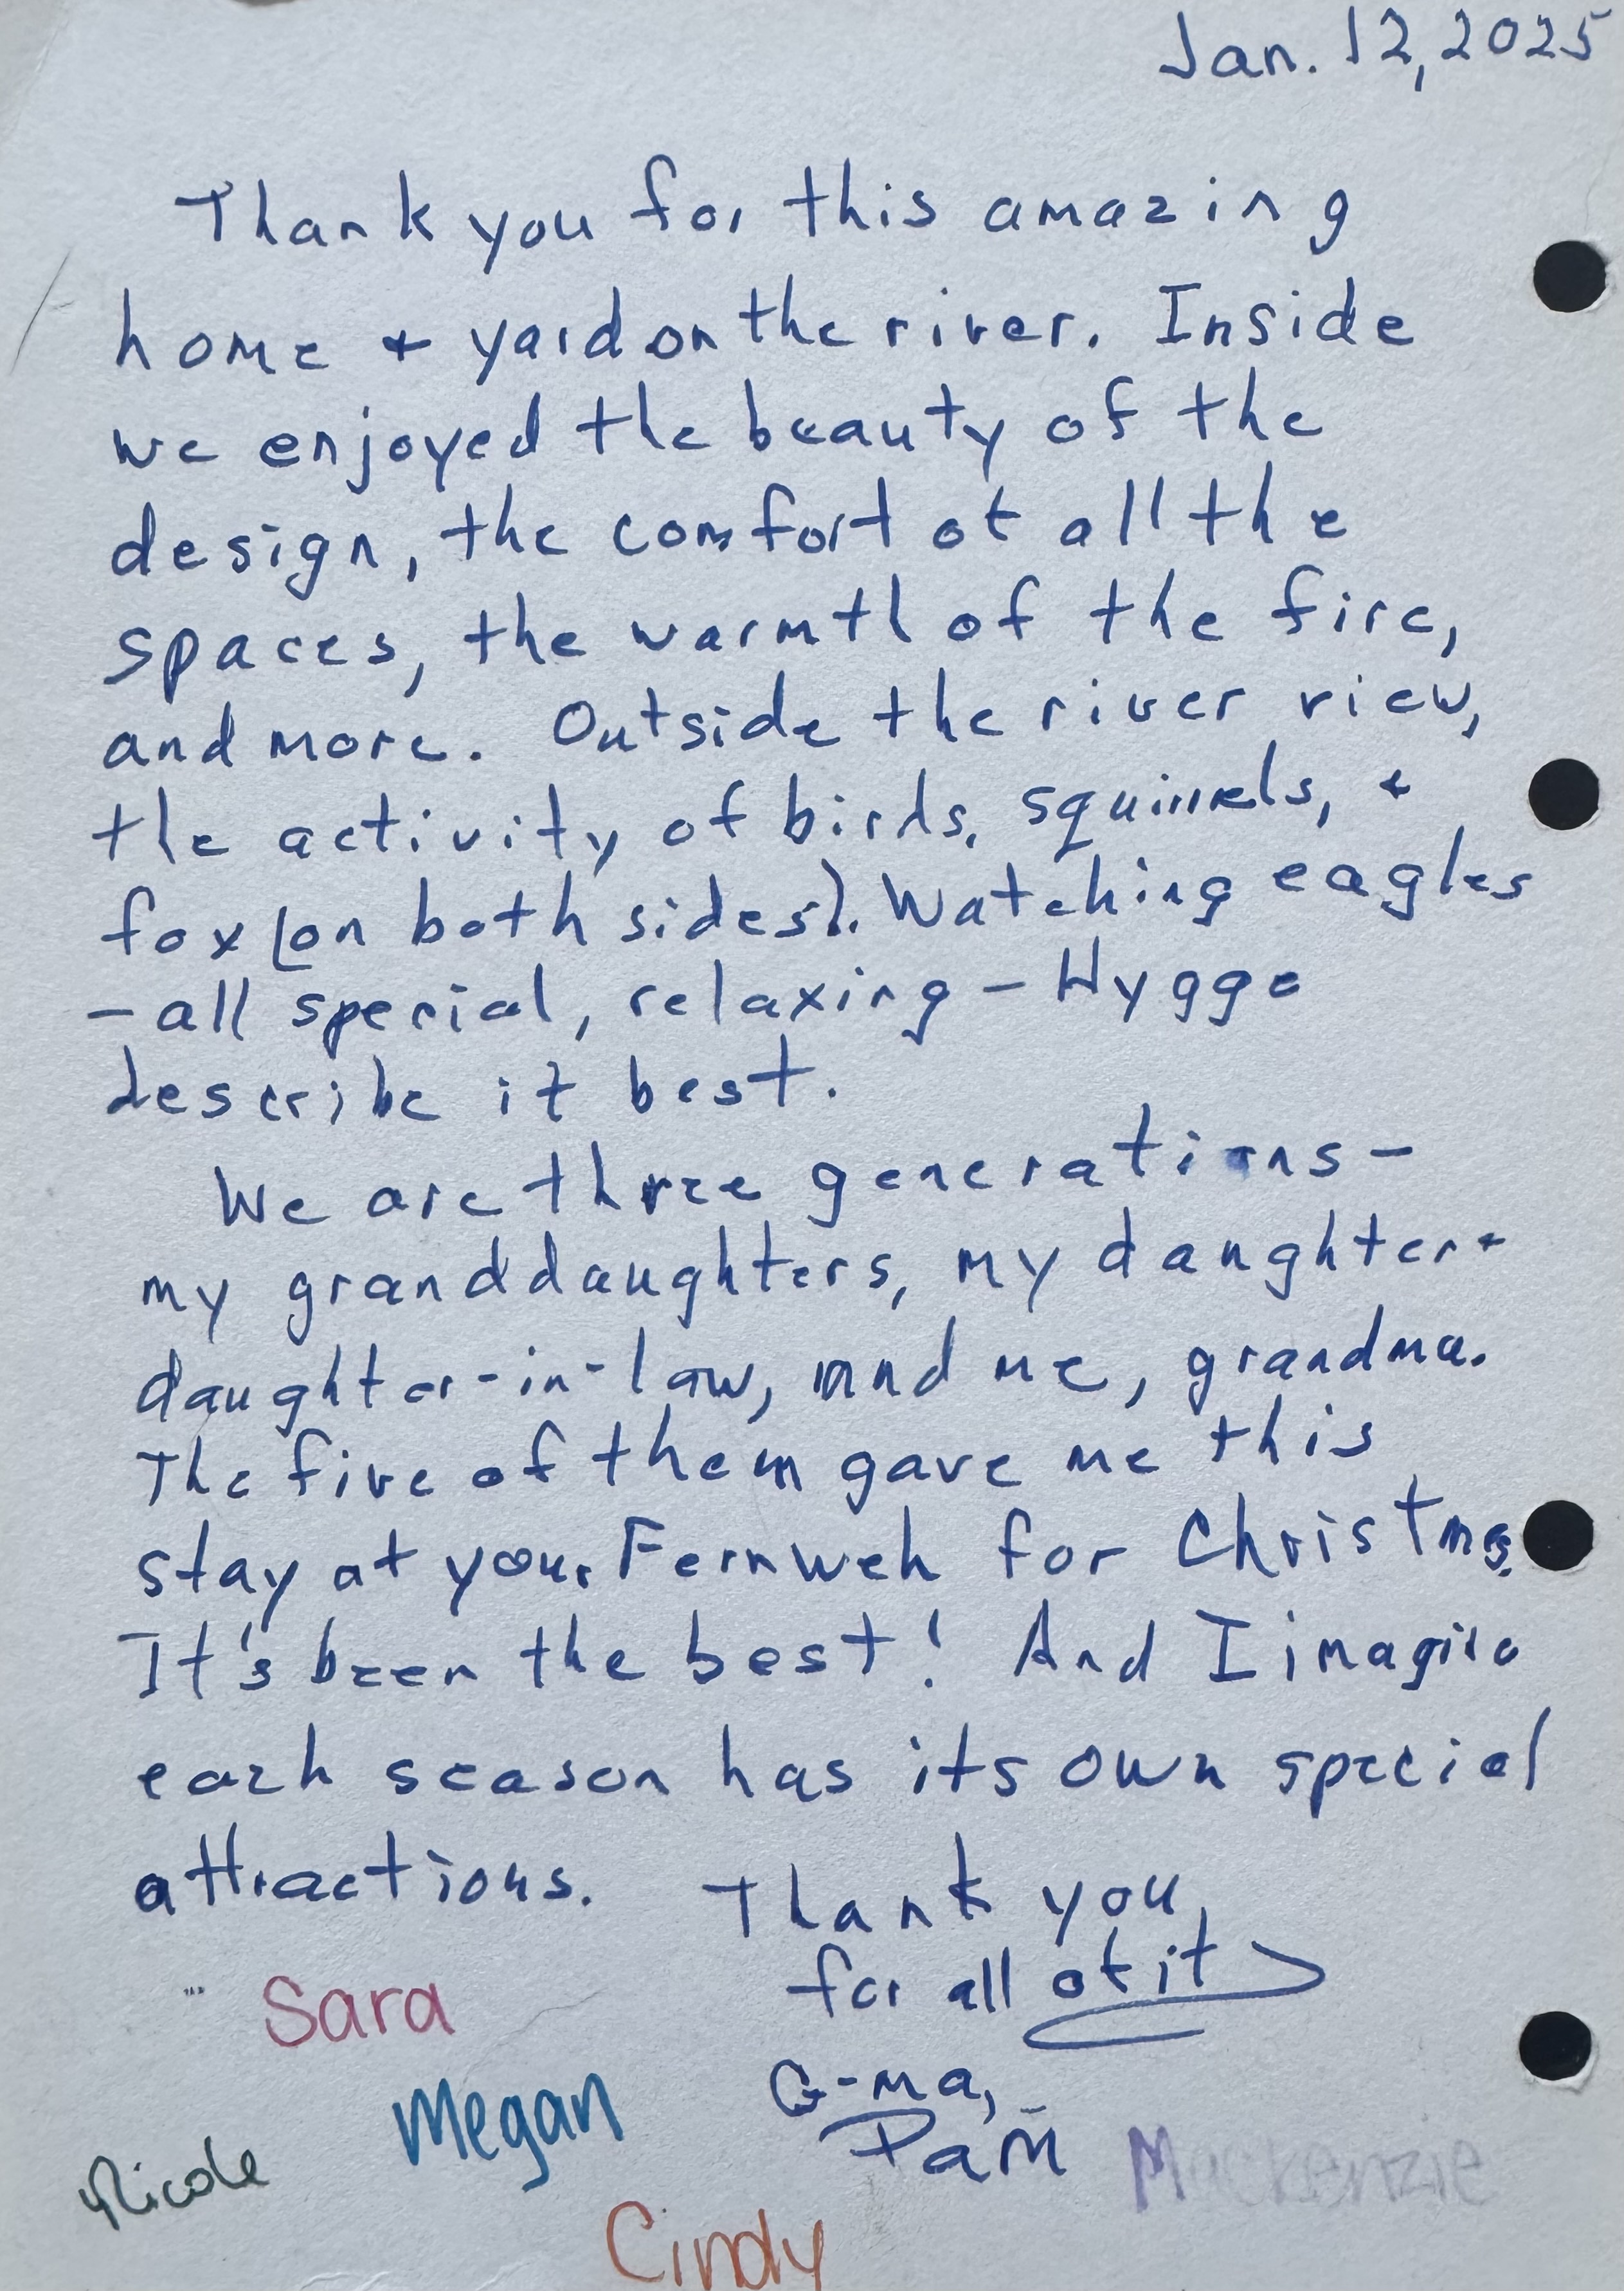 Jan. 12, 2025
Thank you for this amazing
home + yard on the river. Inside
we enjoyed the beauty of the
design, the comfort of all the
spaces, the warmth of the fire,
and more. Outside the river view,
the activity of birds, squirrels, +
fox (on both sides). Watching eagles
- all special, relaxing - Hygge
describe it best.
We are three generations -
my granddaughters, my daughter +
daughter-in-law, and me, grandma.
The five of them gave me this
stay at your Fernweh for Christmas.
It's been the best! And I imagine
each season has its own special
attractions. Thank you
for all of it
Sara
G-ma,
Megan
Pam
Mackenzie
Nicole
Cindy